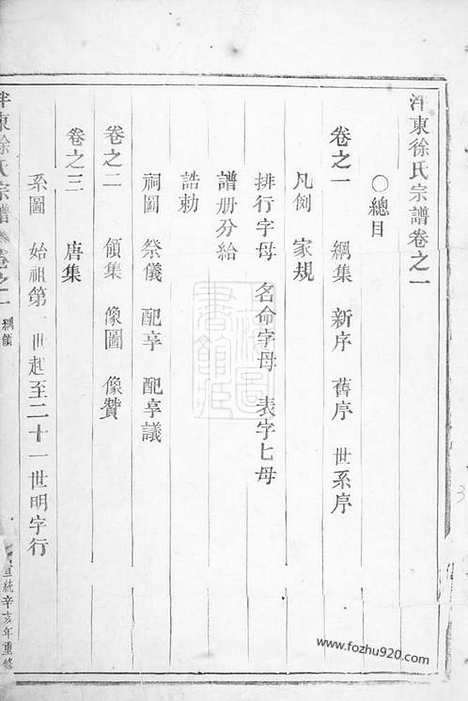 泮東徐氏宗譜卷之一
○總目
卷之一　綱集　新序　舊序　世系序
凡例　家規
排行字母　名命字母　表字七母
譜册分給
誥勅
祠圖　祭儀　配享　配享議
卷之二　領集　像圖　像贊
卷之三　唐集
系圖　始祖第一世起至二十一世明字行
泮東徐氏宗譜　卷之一　綱領
宣統辛亥年重修
www.fozhu920.com
3